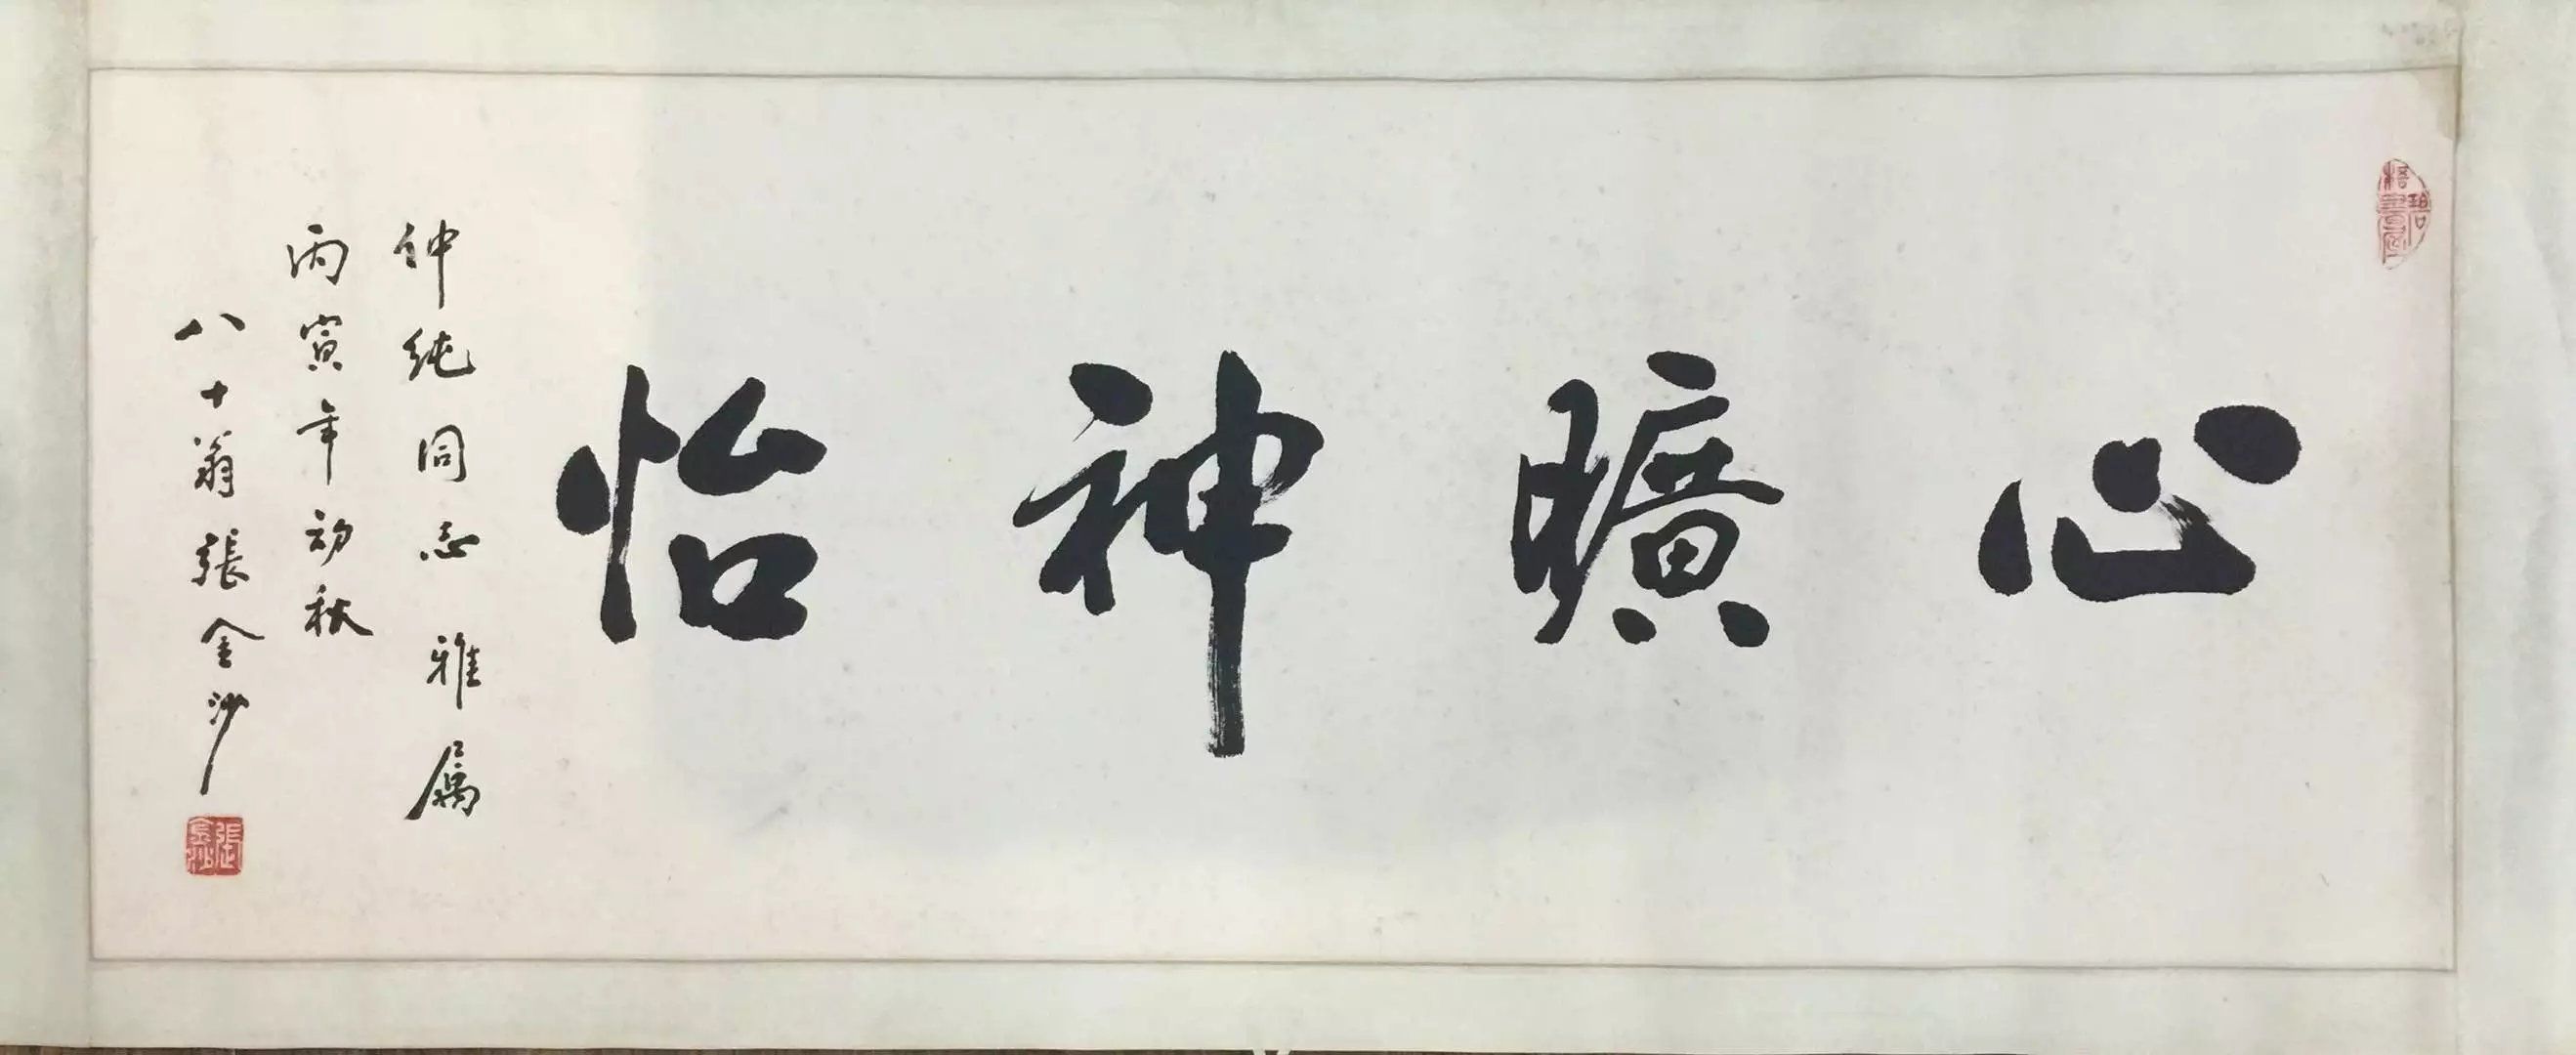 心曠神怡
仲純同志雅属
丙寅年初秋
八十翁張金沙